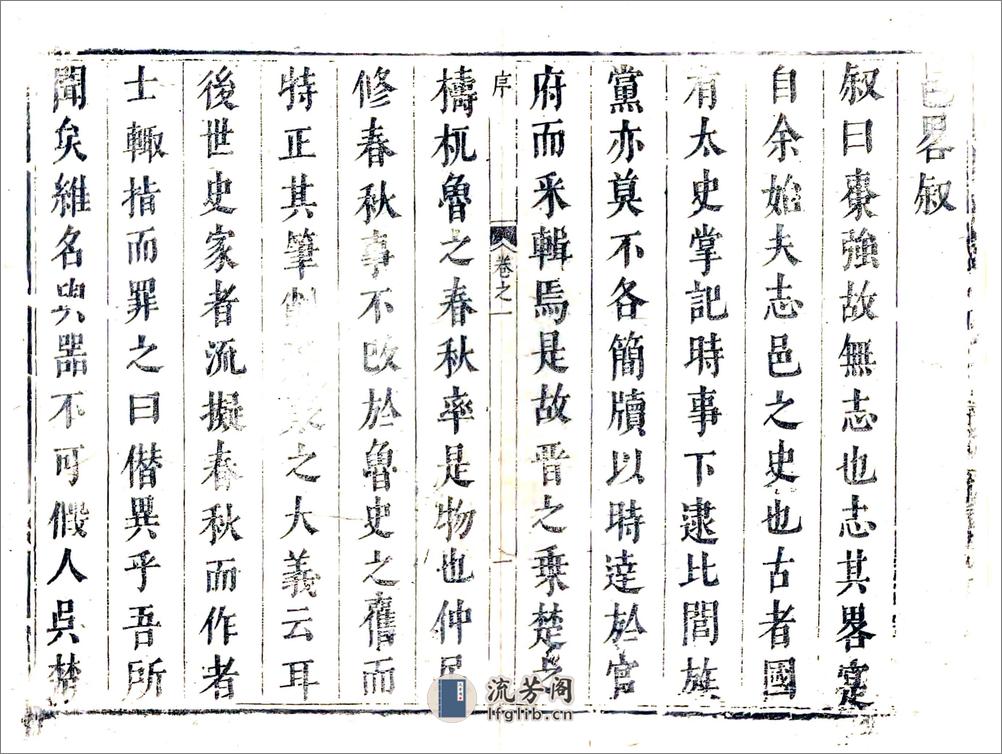 邑畧叙
叙曰棗強故無志也志其畧寔
自余始夫志邑之史也古者國
有太史掌記時事下逮比閭族
黨亦莫不各簡牘以時達於官
府而采輯焉是故晋之乗楚之
序
卷之一
一
檮杌魯之春秋率是物也仲尼
修春秋事不改於魯史之舊而
特正其筆之大義云耳
後世史家者流擬春秋而作者
士輙指而罪之曰僣異乎吾所
聞矣維名與器不可假人吳楚
流芳阁
lfglib.cn